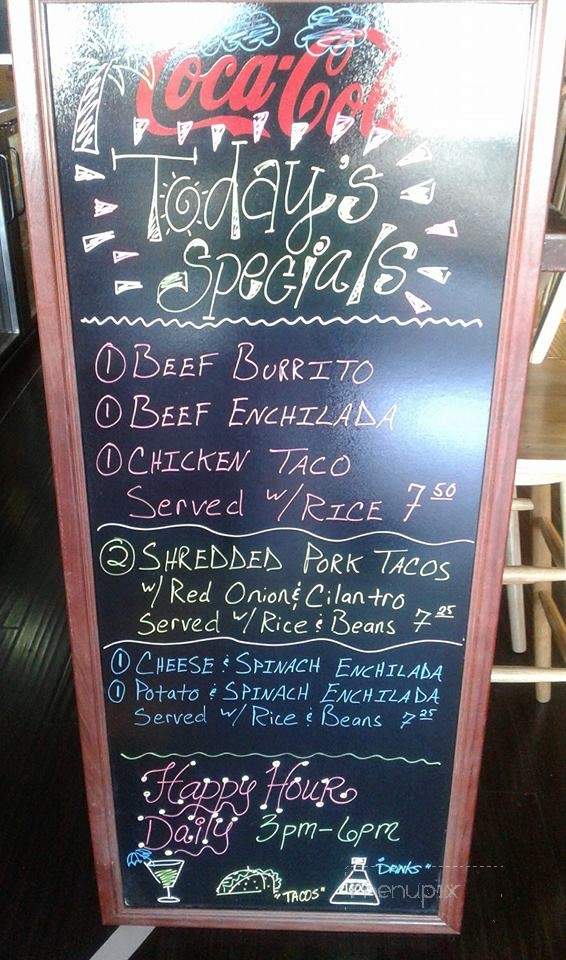 Coca-Cola
Today's
Specials
① BEEF BURRITO
① BEEF ENCHILADA
① CHICKEN TACO
Served w/RICE 7 50
② SHREDDED PORK TACOS
w/ Red Onion & Cilantro
Served w/ Rice & Beans 7 25
① CHEESE & SPINACH ENCHILADA
① Potato & SPINACH ENCHILADA
Served w/ Rice & Beans 7 25
Happy Hour
Daily 3pm-6pm
"TACOS"
"DRINKS"
menupix